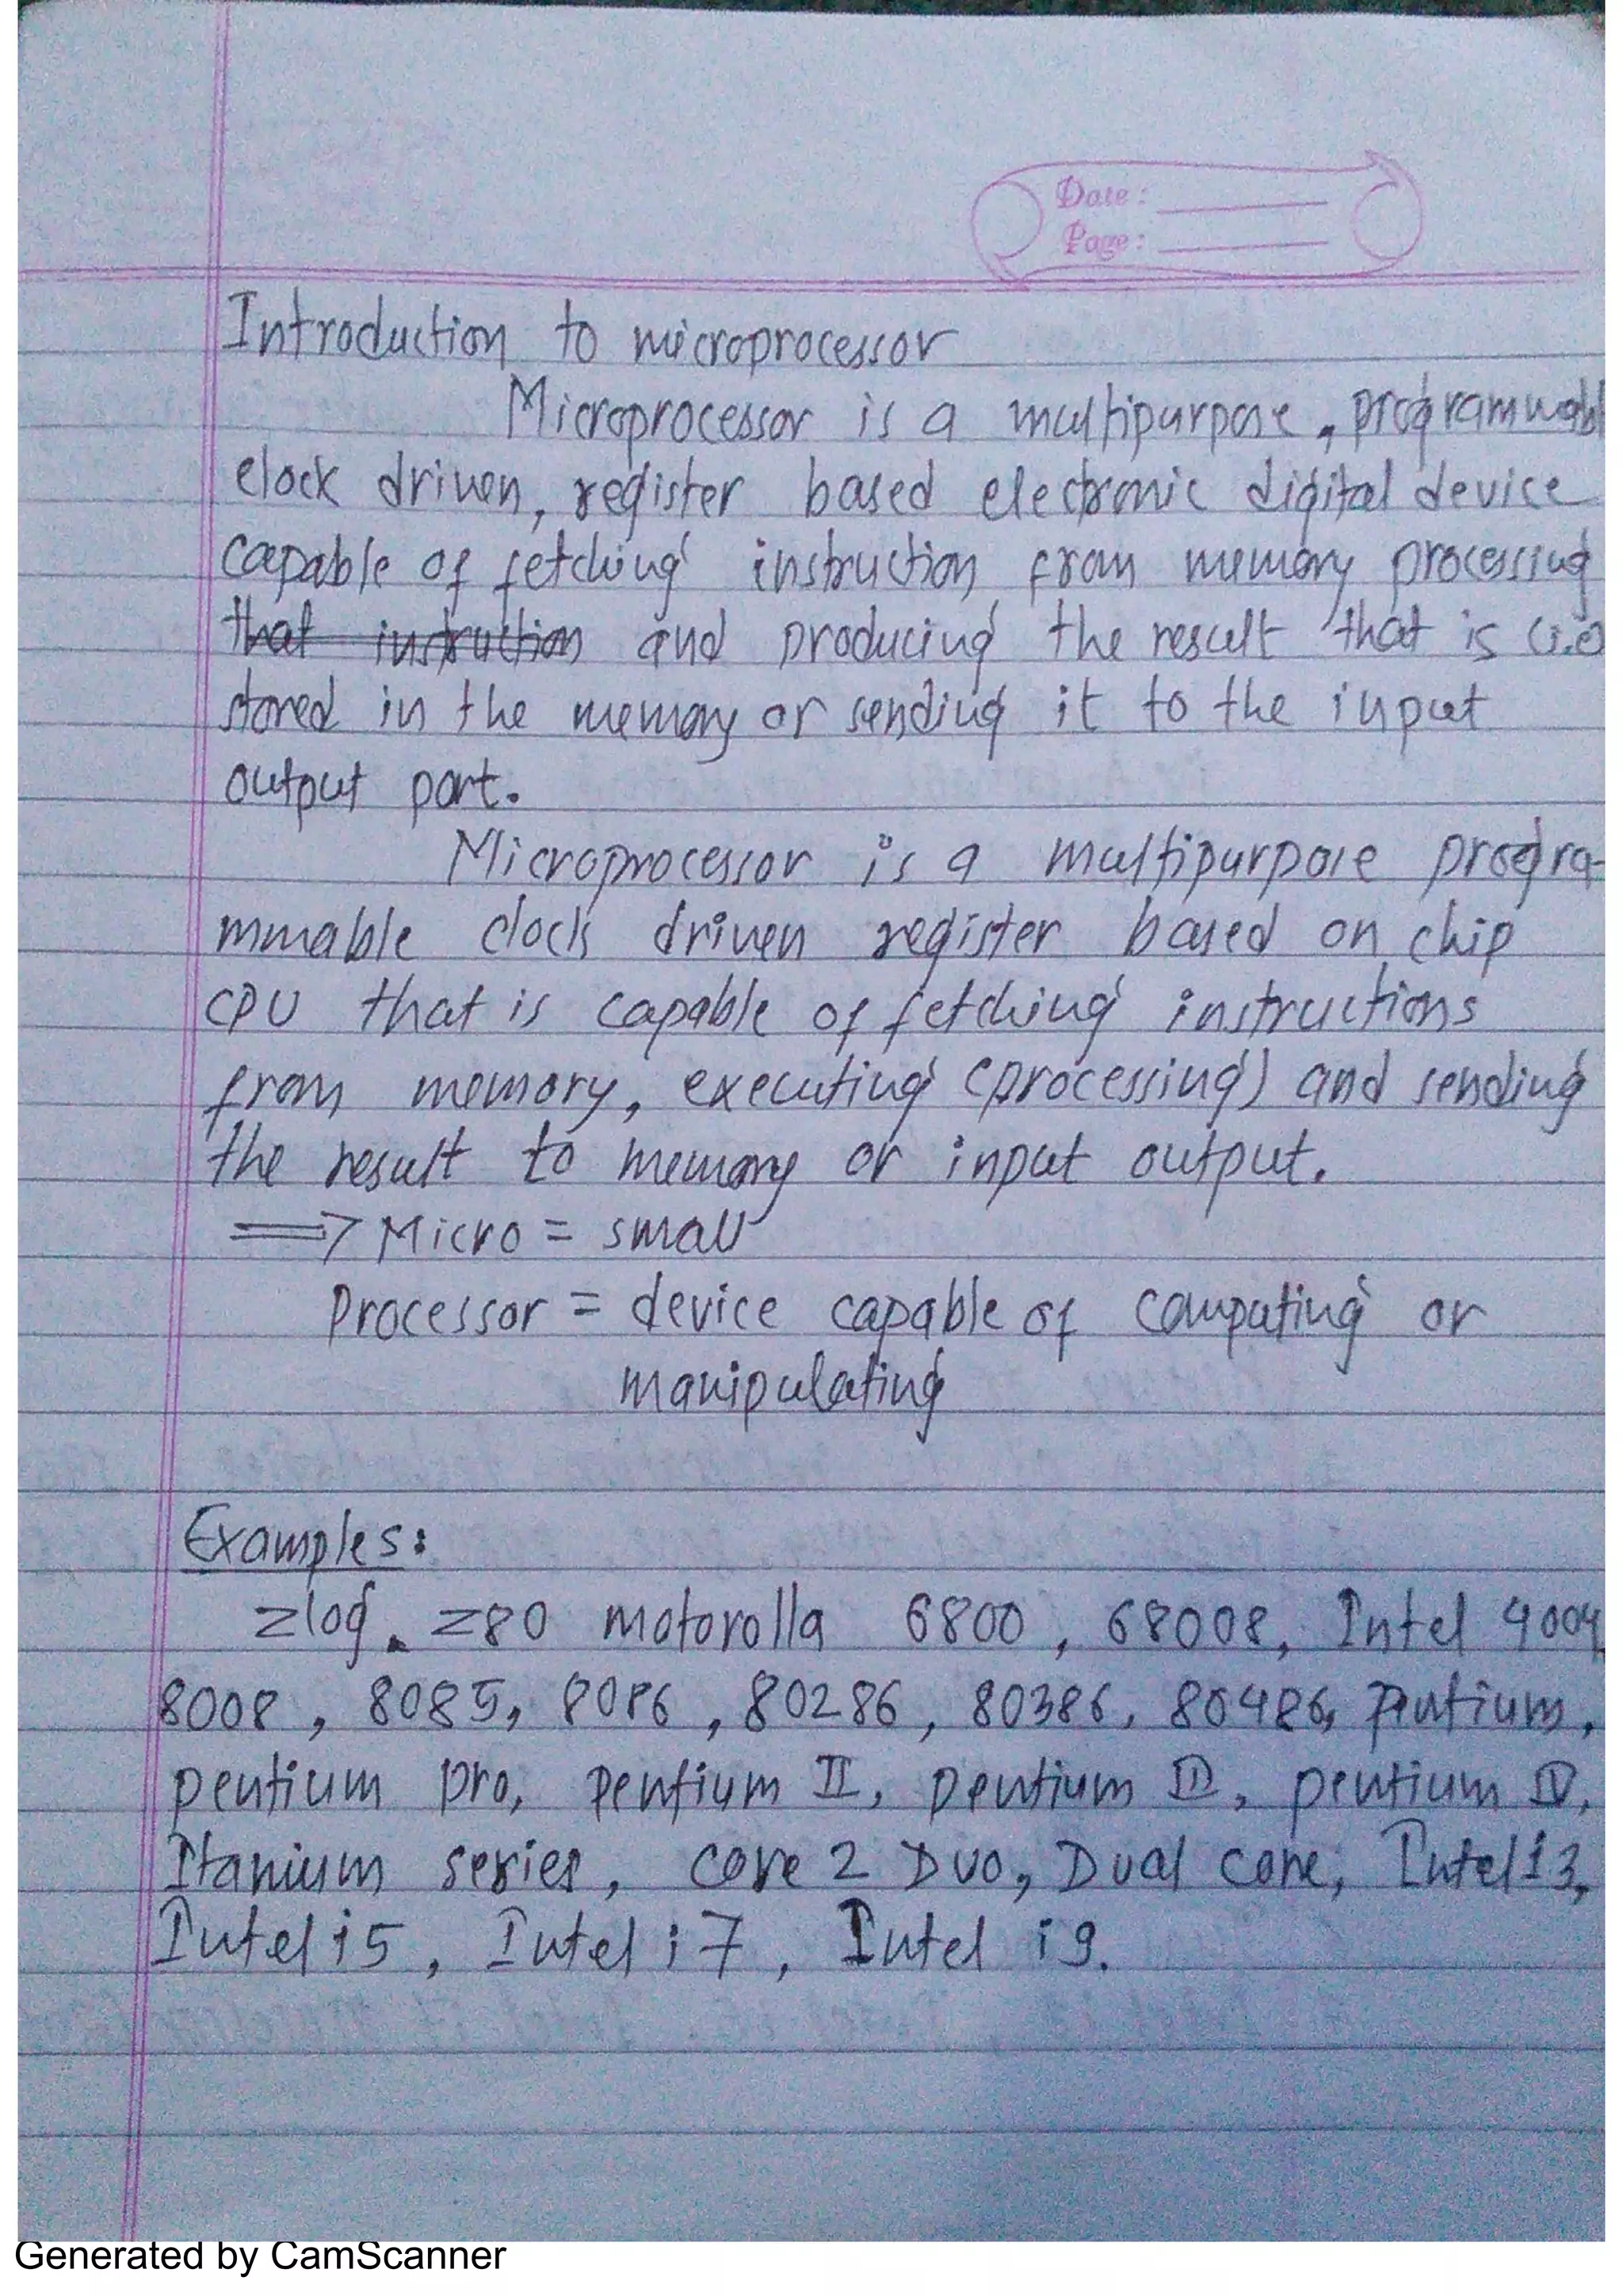 Date:
Page:
Introduction to microprocessor
Microprocessor is a multipurpose, programmabl
clock driven, register based electronic digital device
capable of fetching instruction from memory processing
that instruction and producing the result that is (i.e)
stored in the memory or sending it to the input
output port.
Microprocessor is a multipurpose progra-
mmable clock driven register based on chip
CPU that is capable of fetching instructions
from memory, executing (processing) and sending
the result to memory or input output.
⟹ Micro = small
Processor = device capable of computing or
manipulating
Examples:
zlog. z80 motorolla 6800, 68008, Intel 4004
8008, 8085, 8086, 80286, 80386, 80486, pentium,
pentium pro, pentium II, pentium III, pentium IV,
Itanium series, core 2 Duo, Dual core, Intel i3,
Intel i5, Intel i7, Intel i9.
Generated by CamScanner